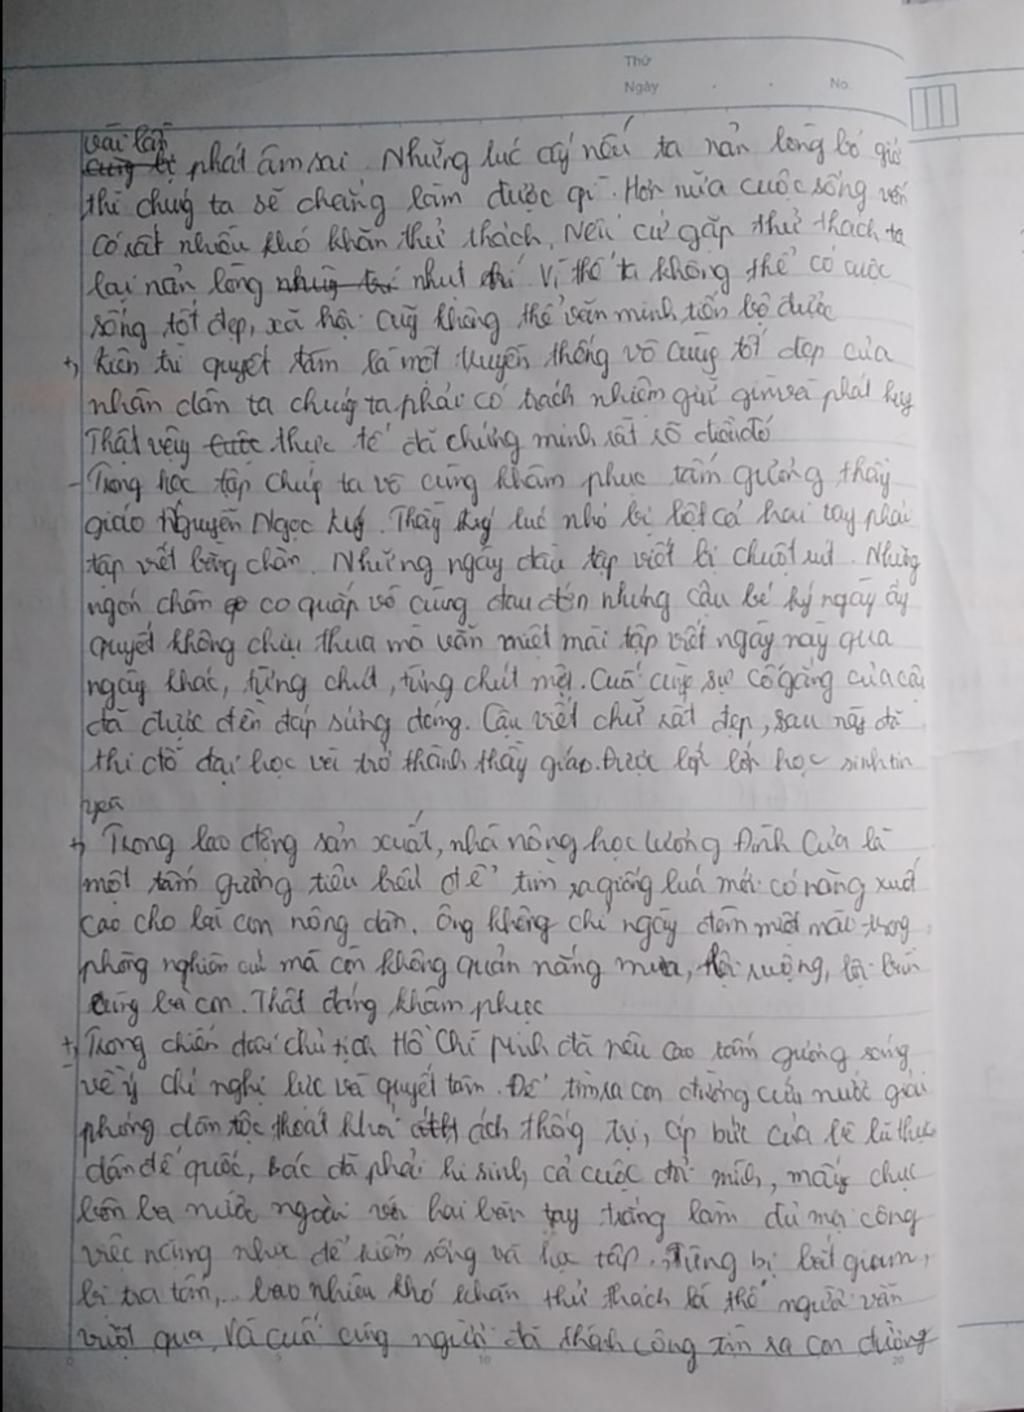 Thứ
Ngày No.
vài lần
phát âm sai. Những lúc ấy nếu ta nản lòng bỏ giở
thì chúng ta sẽ chẳng làm được gì. Hơn nữa cuộc sống vốn
có rất nhiều khó khăn thử thách. Nếu cứ gặp thử thách ta
lại nản lòng nhụt chí. Vì thế ta không thể có cuộc
sống tốt đẹp, xã hội cũg không thể văn minh tiến bộ được
+, Kiên trì quyết tâm là một truyền thống vô cùng tốt đẹp của
nhân dân ta chúng ta phải có trách nhiệm giữ gìn và phát huy
Thật vậy thực tế đã chứng minh rất rõ điều đó
- Trong học tập chúg ta vô cùng khâm phục tấm gương thầy
giáo Nguyễn Ngọc Ký. Thầy Ký lúc nhỏ bị liệt cả hai tay phải
tập viết bằng chân. Những ngày đầu tập viết bị chuột rút. Những
ngón chân co quắp vô cùng đau đớn nhưng cậu bé Ký ngày ấy
quyết không chịu thua mà vẫn miệt mài tập viết ngày này qua
ngày khác, từng chút, từng chút một. Cuối cùng sự cố gắng của cậu
đã được đền đáp xứng đáng. Cậu viết chữ rất đẹp, sau này đã
thi đỗ đại học và trở thành thầy giáo. Được lớp lớp học sinh tin
yêu
+, Trong lao động sản xuất, nhà nông học Lương Đình Của là
một tấm gương tiêu biểu để tìm ra giống lúa mới có năng xuất
cao cho bà con nông dân. Ông không chỉ ngày đêm miệt mài trong
phòng nghiên cứu mà còn không quản nắng mưa, lội ruộng, lội bùn
cùng bà con. Thật đáng khâm phục
+, Trong chiến đấu chủ tịch Hồ Chí Minh đã nêu cao tấm gương sáng
về ý chí nghị lực và quyết tâm. Để tìm ra con đường cứu nước giải
phóng dân tộc thoát khỏi ách thống trị, áp bức của bè lũ thực
dân đế quốc, Bác đã phải hi sinh cả cuộc đời mình, mấy chục
bôn ba nước ngoài với hai bàn tay trắng làm đủ mọi công
việc nặng nhọc để kiếm sống và học tập. Từng bị bắt giam,
bị tra tấn,... bao nhiêu khó khăn thử thách là thế người vẫn
vượt qua. Và cuối cùng người đã thành công tìm ra con đường
10 20